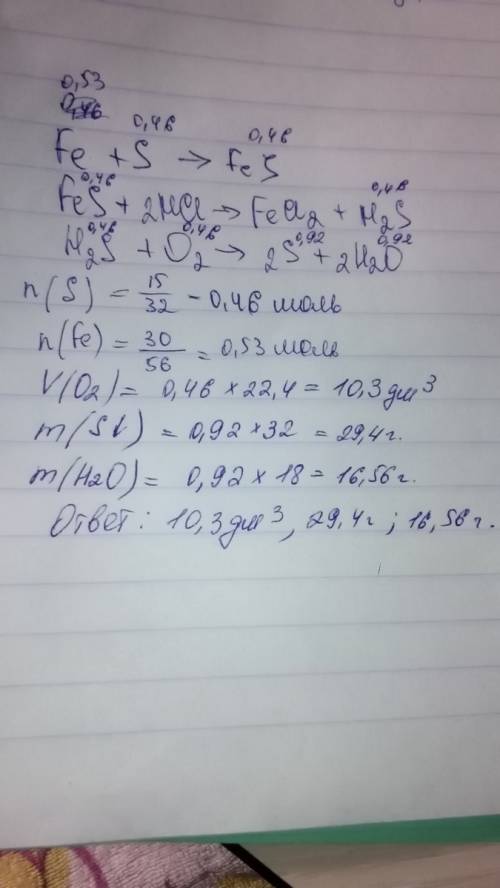 0,53
0,46 0,46
Fe + S → FeS
0,46 0,46
FeS + 2HCl → FeCl2 + H2S
0,46 0,46 0,92 0,92
H2S + O2 → 2S + 2H2O
n(S) = 15/32 - 0,46 моль
n(Fe) = 30/56 = 0,53 моль
V(O2) = 0,46 × 22,4 = 10,3 дм³
m(S↓) = 0,92 × 32 = 29,4 г.
m(H2O) = 0,92 × 18 = 16,56 г.
Ответ: 10,3 дм³, 29,4 г ; 16,56 г.